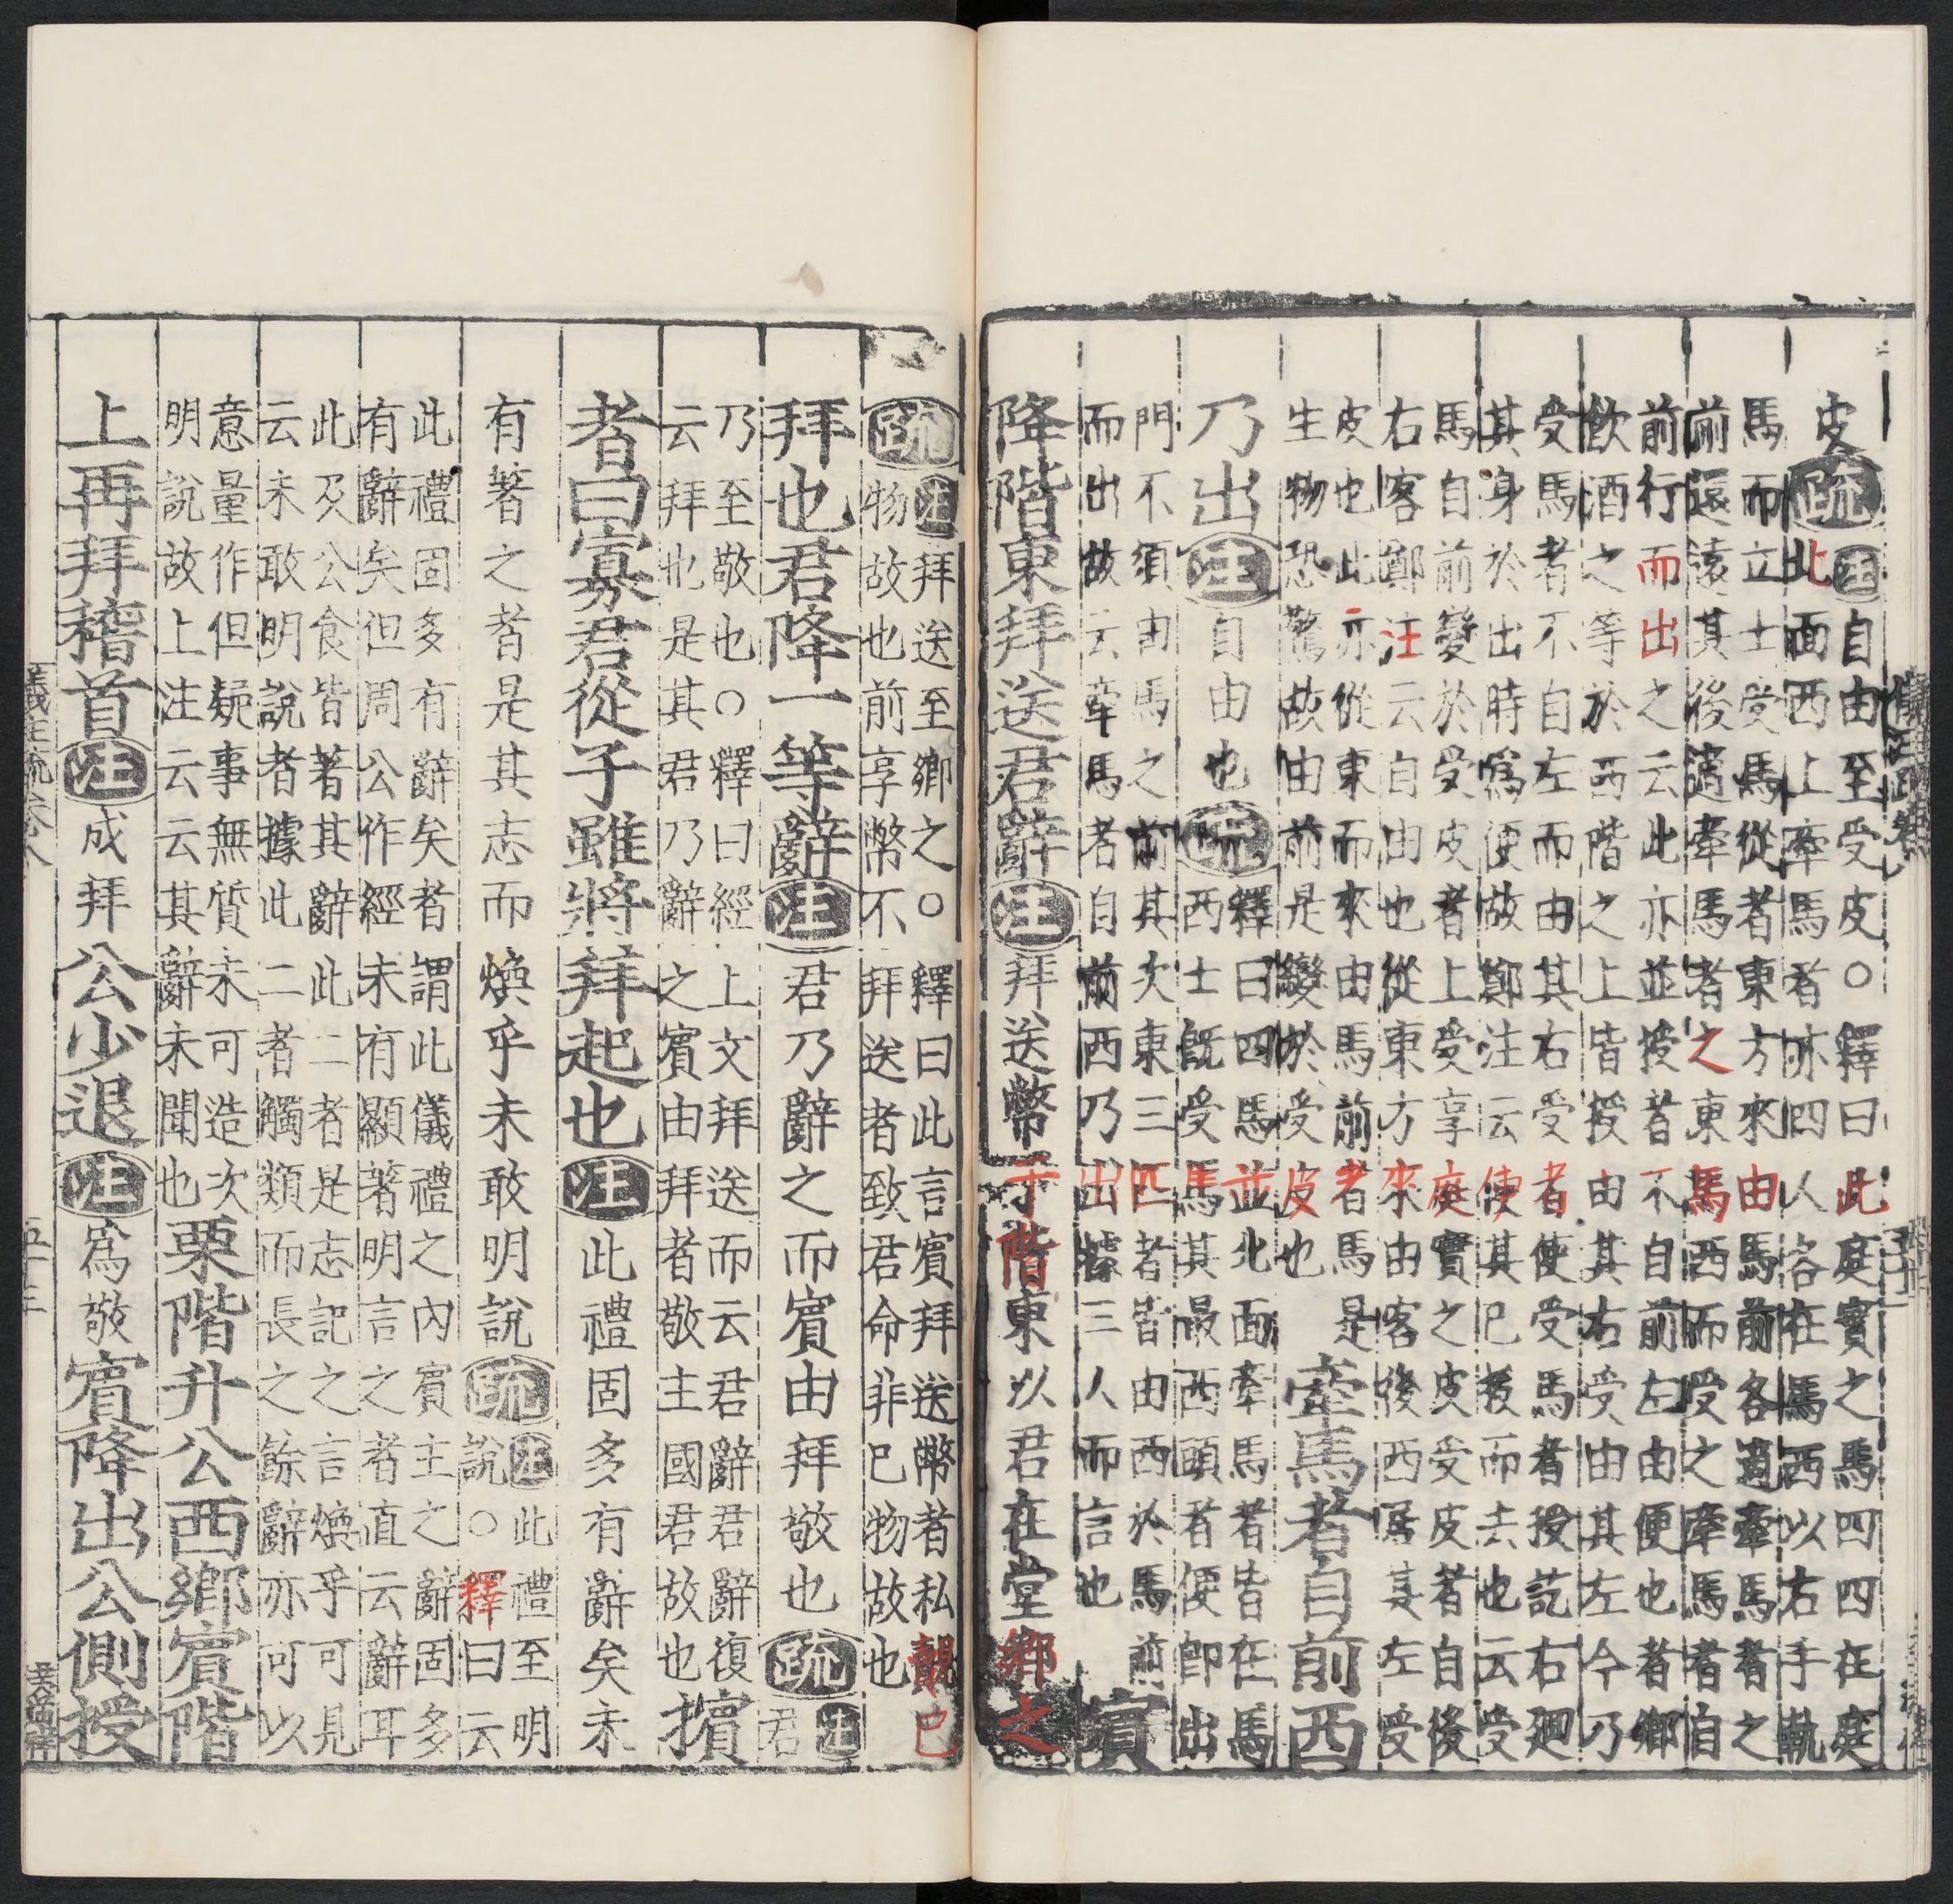 皮疏注自由至受皮○釋曰此庭實之馬四四在庭
北面西上牽馬者亦四人各在馬西以右手執
馬而立士受馬從者東方來由馬前各適牽馬者之
前還遶其後適牽馬者之東馬西而受之牽馬者自
前行而出之云此亦並授者不自前左由便也者鄉
飲酒之等於西階之上皆授由其右受由其左今乃
受馬者不自左而由其右受者使受馬者授訖右廻
其身於出時爲便故鄭注云使其已授而去也云受
馬自前變於受皮者上受享庭實之皮受皮者自後
右客鄭汪云自由也從東方來由客後西居其左受
皮也此亦從東而來由馬前者馬是
生物恐驚故由前是變於受皮也
牽馬者自前西
乃出注自由也疏釋曰四馬並北面牽馬者皆在馬
西士旣受馬其最西頭者便卽出
門不須由馬之前其次東三匹者皆由西於馬前
而出故云牽馬者自前西乃出據三人而言也
賓
降階東拜送君辭注拜送幣于階東以君在堂鄉之
疏注拜送至鄉之○釋曰此言賓拜送幣者私覿已
物故也前享幣不拜送者致君命非已物故也
拜也君降一等辭注君乃辭之而賓由拜敬也疏注君
乃至敬也○釋曰經上文拜送而云君辭君辭復
云拜也是其君乃辭之賓由拜者敬主國君故也
擯
者曰寡君從子雖將拜起也注此禮固多有辭矣未
有著之者是其志而煥乎未敢明說疏注此禮至明
說○釋曰云
此禮固多有辭矣者謂此儀禮之內賓主之辭固多
有辭矣但周公作經未有顯著明言之者直云辭耳
此及公食皆著其辭此二者是志記之言煥乎可見
云未敢明說者據此二者觸類而長之餘辭亦可以
意量作但疑事無質未可造次
明說故上注云云其辭未聞也
栗階升公西鄉賓階
上再拜稽首注成拜公少退注爲敬賓降出公側授